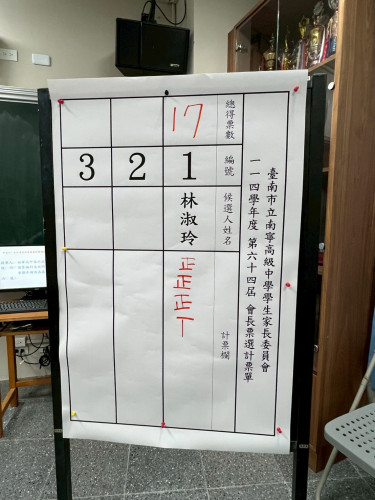 臺南市立南寧高級中學學生家長委員會
一一四學年度 第六十四屆 會長票選計票單
總得票數
17
編號
1
2
3
候選人姓名
林淑玲
計票欄
正
正
正
丅